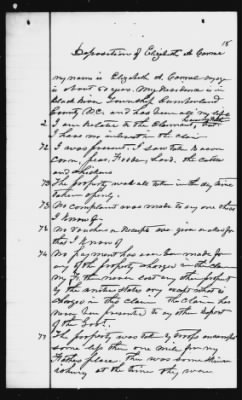 18
Deposition of Elizabeth A Comel
my name is Elizabeth A. my age
is about 50 years. My Residence is in
Black River Township Cumberland
County N.C. and has been all my life
2 I am Related to the Claimant
I have no interest in the claim
72 I was present. I saw taken Bacon
Corn, peas, Fodder, Lard, the cattle
and chickens
73 The property was all taken in the day time
taken openly
75 No complaint was made to any one that
I know of
76 no vouchers or Receipts are given or asked for
that I know of
76 No payment has ever been made for
any of the property charged in the claim
My Father never lost any other property
by the united States army except what is
charged in this claim The claim has
never been presented to any other Depart
of the Govt.
77 The property was taken by troops encamped
some less than one mile from my
Fathers place. There was some
at the time they were